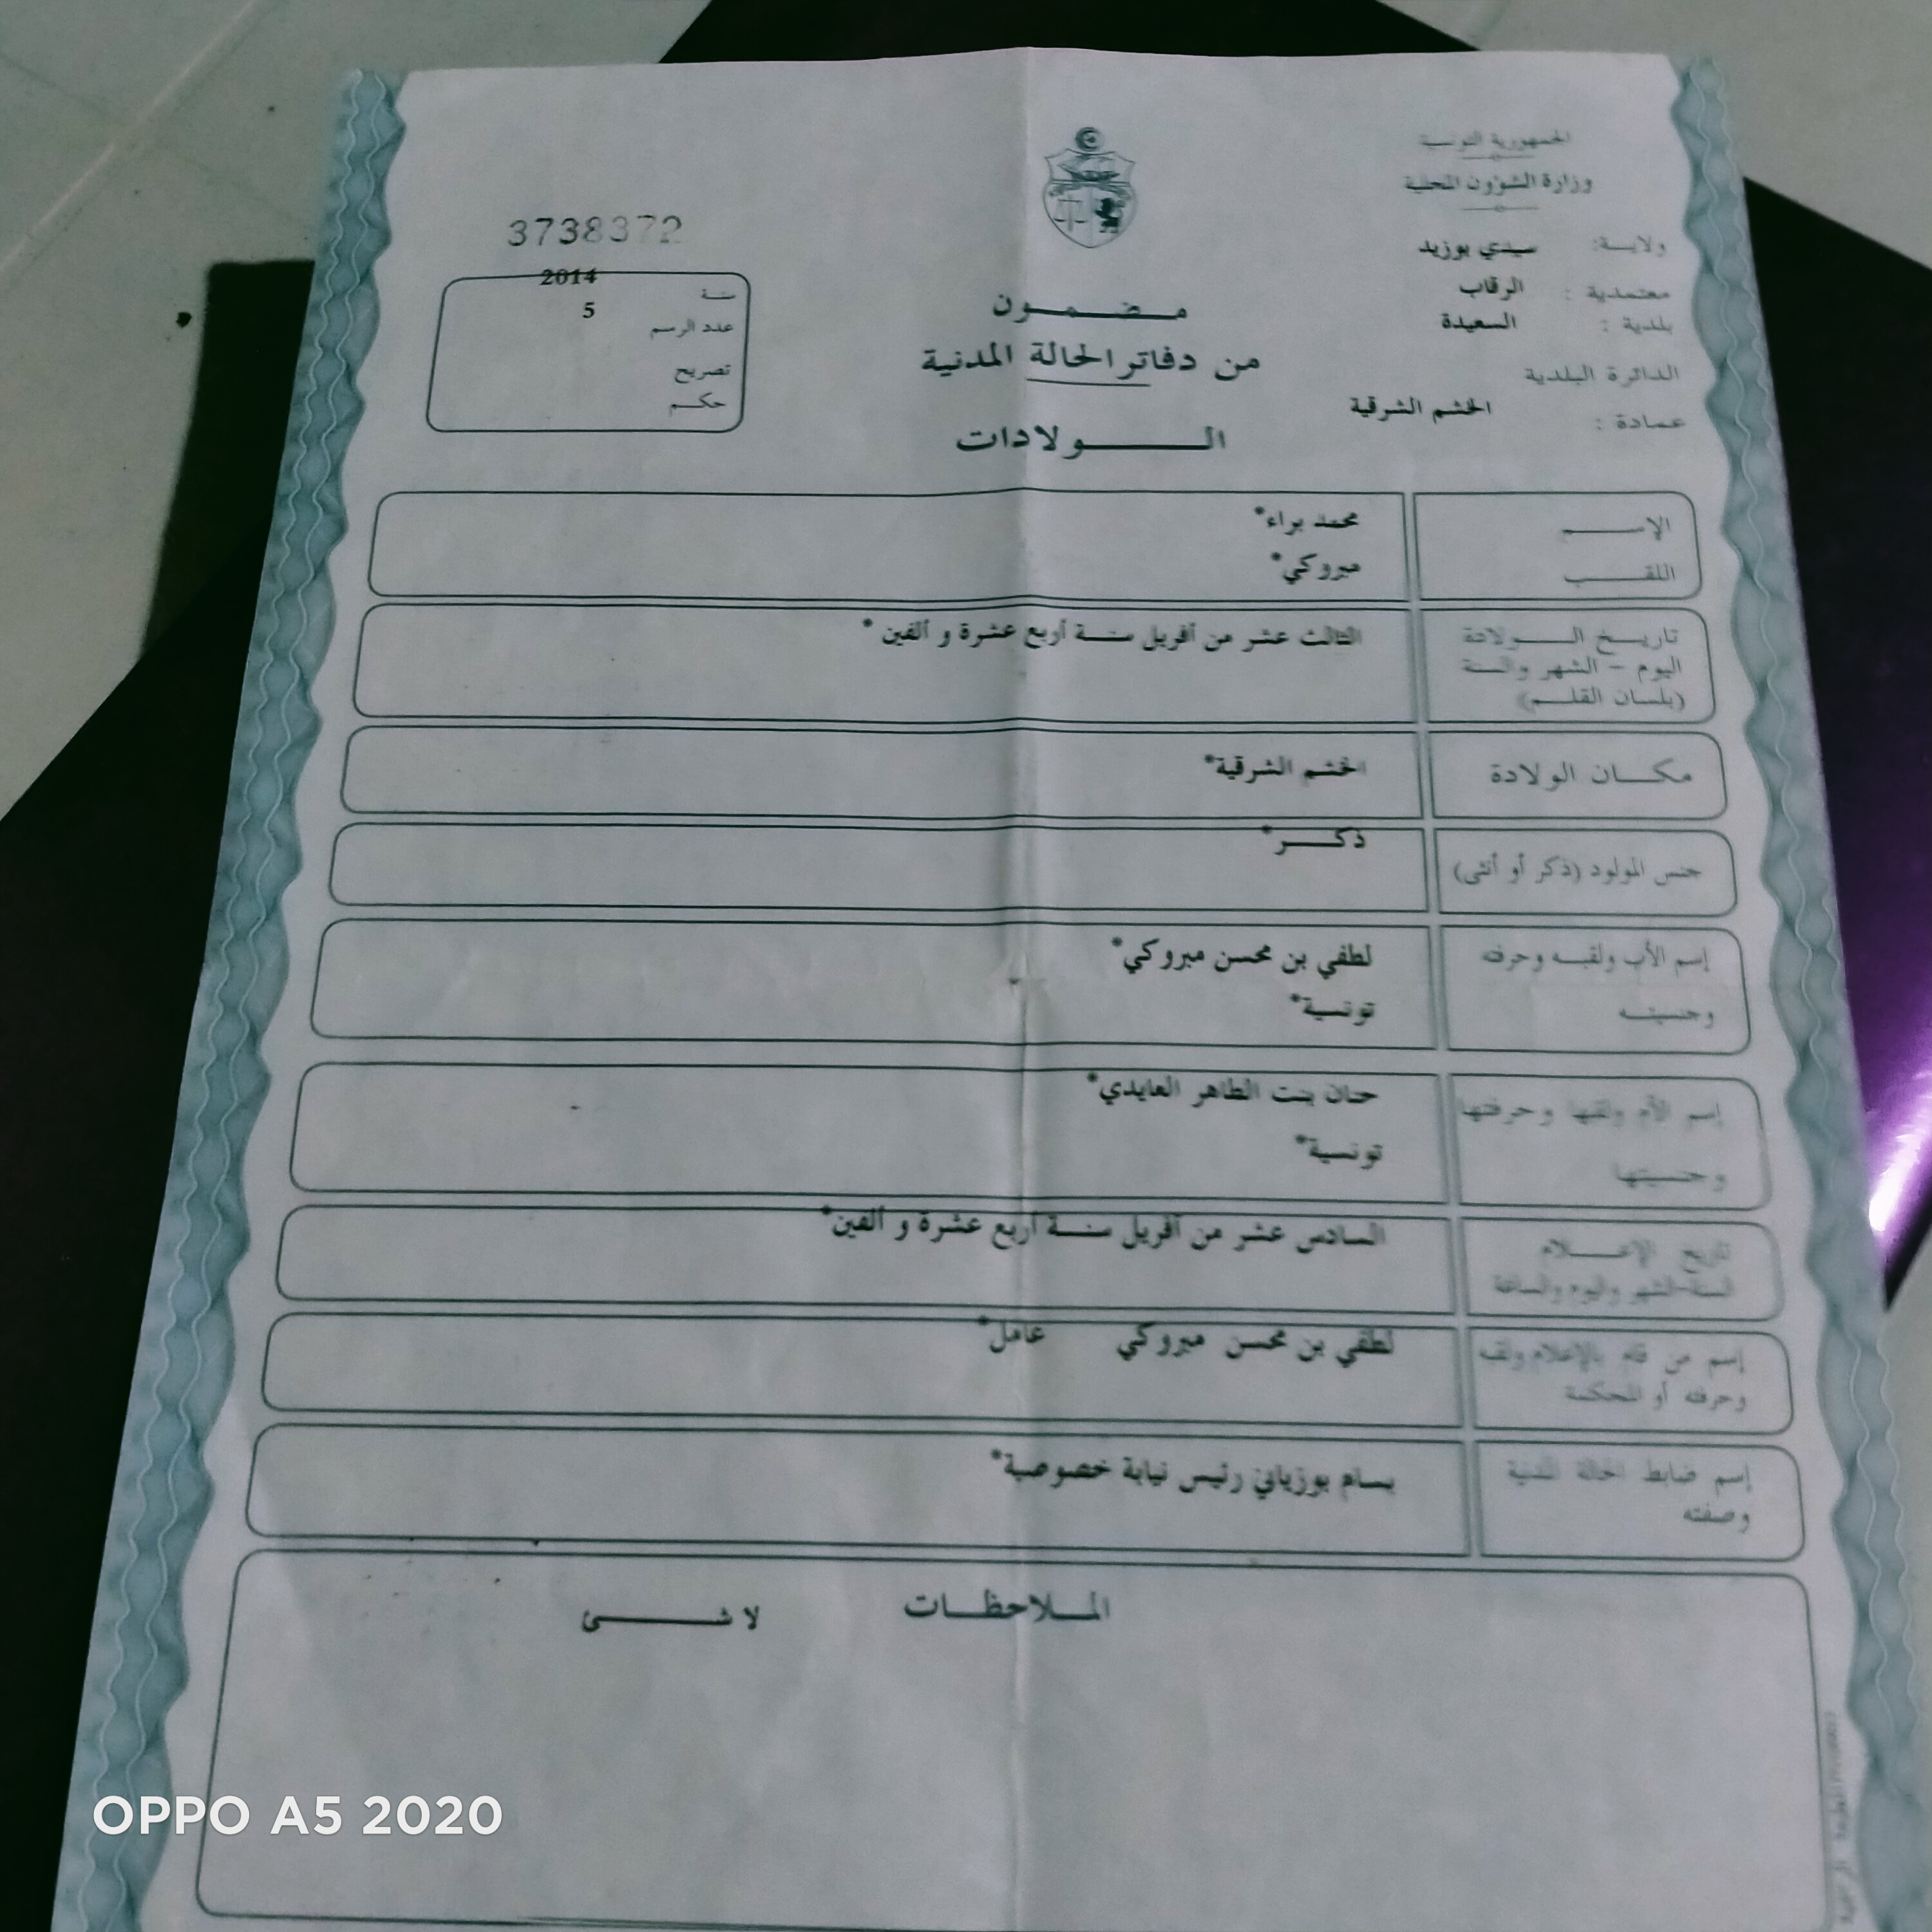 الجمهورية التونسية
وزارة الشؤون المحلية
ولاية: سيدي بوزيد
معتمدية : الرقاب
بلدية : السعيدة
الدائرة البلدية
عمادة : الخشم الشرقية
مضمون
من دفاتر الحالة المدنية
الولادات
3738372
سنة 2014
عدد الرسم 5
تصريح
حكم
الإسم محمد براء*
اللقب مبروكي*
تاريخ الولادة الثالث عشر من أفريل سنة أربع عشرة و ألفين *
اليوم - الشهر والسنة
(بلسان القلم)
مكان الولادة الخشم الشرقية*
جنس المولود (ذكر أو أنثى) ذكر*
إسم الأب ولقبه وحرفته لطفي بن محسن مبروكي*
وجنسيته تونسية*
إسم الأم ولقبها وحرفتها حنان بنت الطاهر العايدي*
وجنسيتها تونسية*
تاريخ الإعلام السادس عشر من أفريل سنة أربع عشرة و ألفين*
السنة-الشهر واليوم والساعة
إسم من قام بالإعلام ولقبه لطفي بن محسن مبروكي عامل*
وحرفته أو المحكمة
إسم ضابط الحالة المدنية بسام بوزياني رئيس نيابة خصوصية*
وصفته
الملاحظات لا شئ
OPPO A5 2020